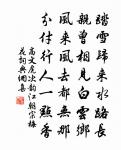 踏雪歸來水路長
親曾相見白雲鄉
風來風去都無那
不付行人一點香
高文虎次韵江朝宗梅
花詞